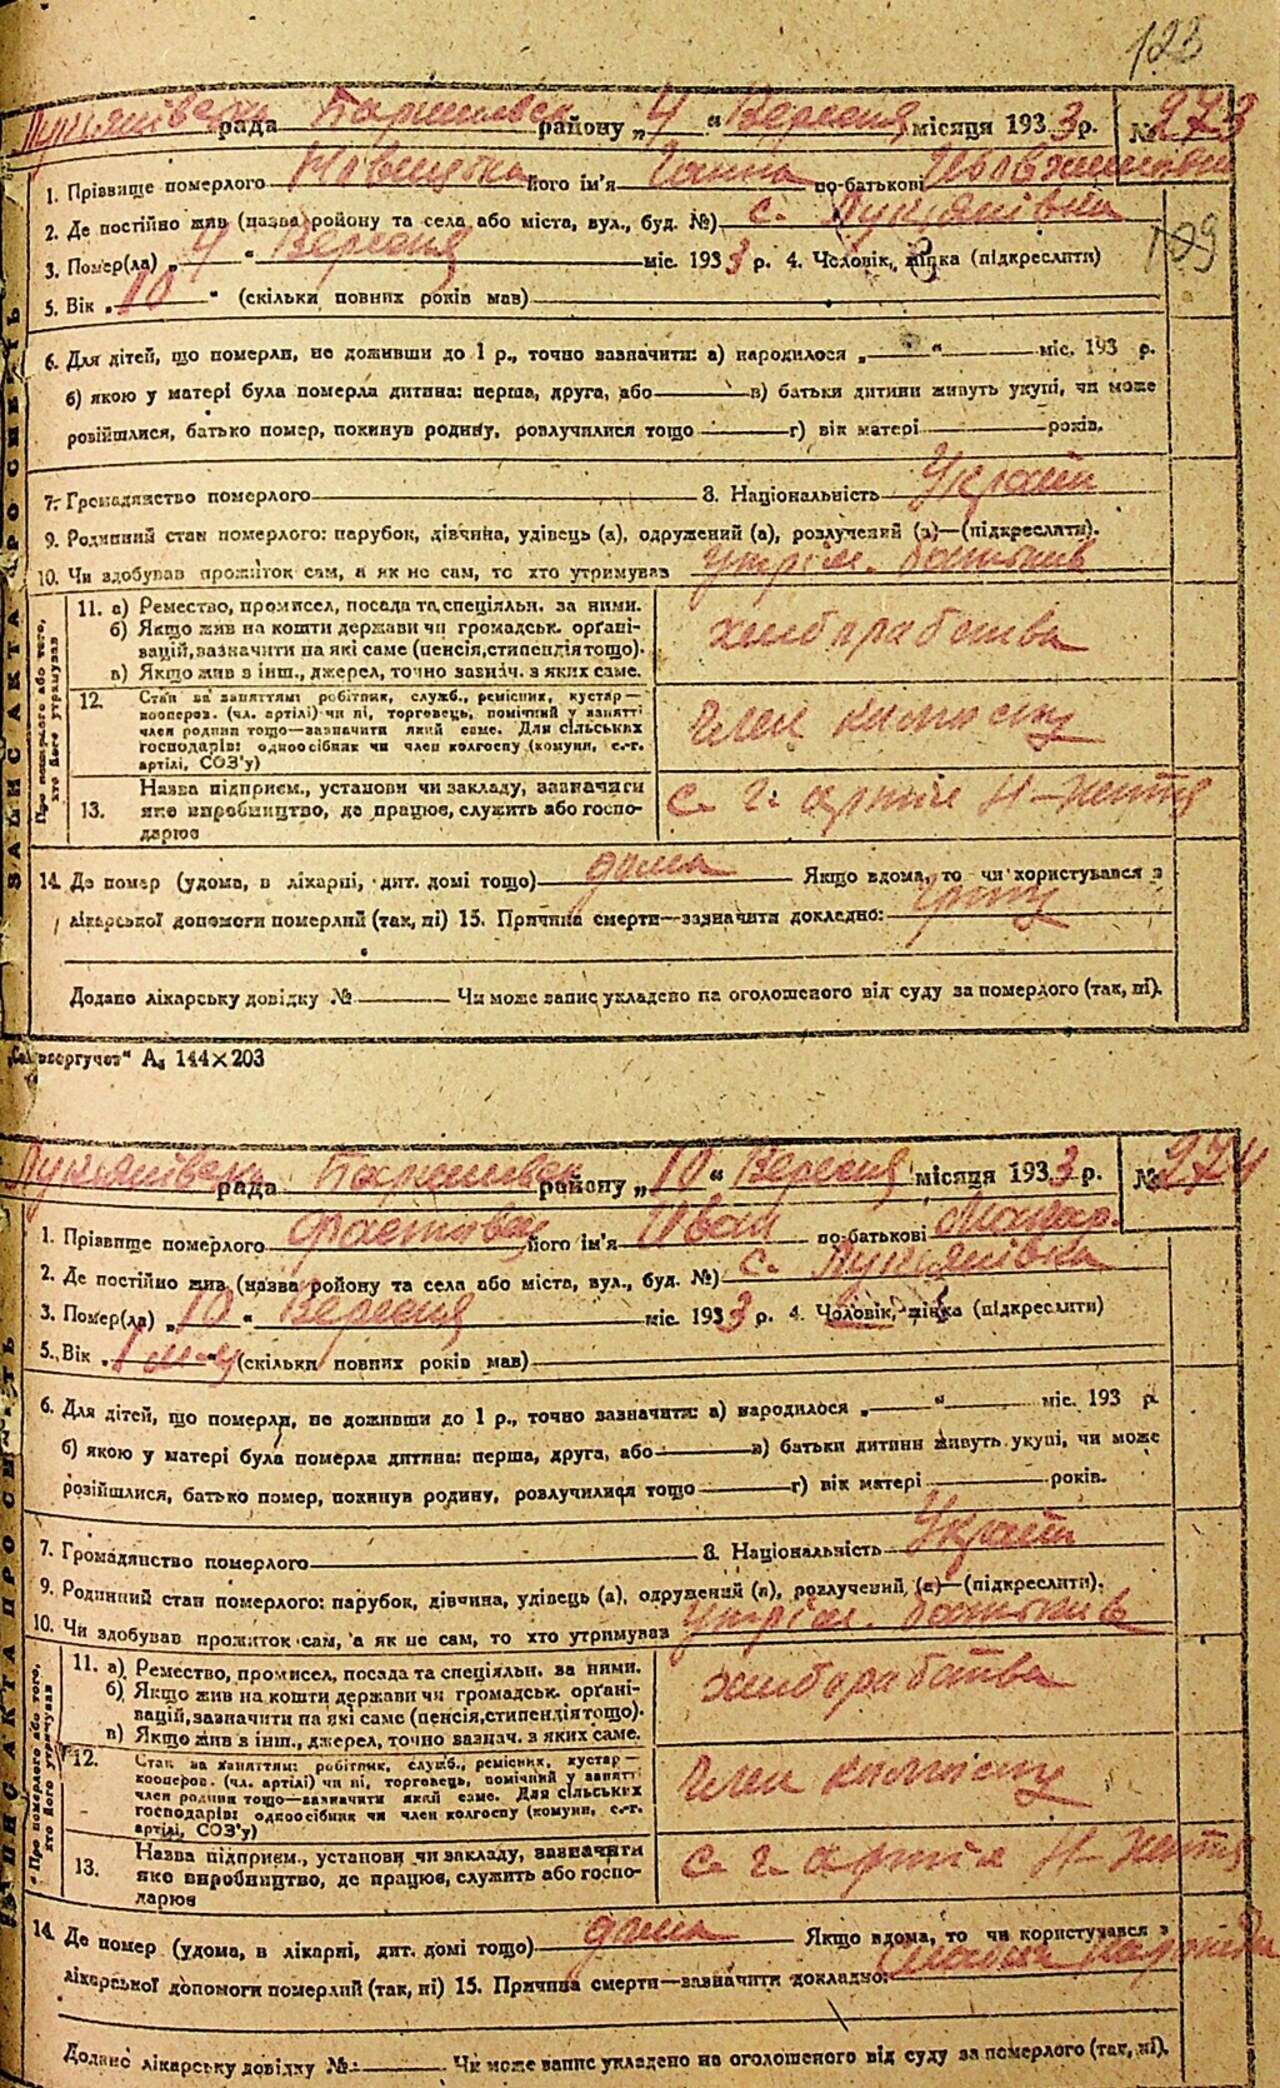 123
Лукянівськ рада Баришевськ району „4“ Вересня місяця 1933 р. № 273
1. Прізвище померлого його ім'я Ганна по-батькові
2. Де постійно жив (назва району та села або міста, вул., буд. №) с. Лукянівка
3. Помер(ла) „4“ Вересня міс. 1933 р. 4. Чоловік, жінка (підкреслити)
109
5. Вік „10“ (скільки повних років мав)
6. Для дітей, що померли, не доживши до 1 р., точно зазначити: а) народилося „ “ міс. 193 р.
б) якою у матері була померла дитина: перша, друга, або в) батьки дитини живуть укупі, чи може
розійшлися, батько помер, покинув родину, розлучилися тощо г) вік матері років.
7. Громадянство померлого 8. Національність Україн
9. Родинний стан померлого: парубок, дівчина, удівець (а), одружений (а), розлучений (а)—(підкреслити).
10. Чи здобував прожиток сам, а як не сам, то хто утримував утрім. батьків
ЗАПИС АКТА ПРО СМЕРТЬ
Про померлого або того, хто його утримував
11. а) Ремество, промисел, посада та спеціяльн. за ними.
б) Якщо жив на кошти держави чи громадськ. орґані-
зацій, зазначити на які саме (пенсія, стипендія тощо).
в) Якщо жив з інш., джерел, точно зазнач. з яких саме.
хлиборабства
12. Стан за заняттям: робітник, служб., ремісник, кустар—
кооперов. (чл. артілі) чи ні, торговець, помічний у занятті
член родини тощо—зазначити який саме. Для сільських
господарів: одноосібник чи член колгоспу (комуни, с.-г.
артілі, СОЗ'у)
Член
13. Назва підприєм., установи чи закладу, зазначити
яке виробництво, де працює, служить або госпо-
дарює
с. г. артіл Н-життя
14. Де помер (удома, в лікарні, дит. домі тощо) дома Якщо вдома, то чи користувався з
лікарської допомоги померлий (так, ні) 15. Причина смерти—зазначити докладно: грип
Додано лікарську довідку № Чи може запис укладено на оголошеного від суду за померлого (так, ні).
А₅ 144×203
Лукянівськ рада Баришевськ району „10“ Вересня місяця 1933 р. № 274
1. Прізвище померлого Фастовец його ім'я Иван по-батькові
2. Де постійно жив (назва району та села або міста, вул., буд. №) с. Лукянівка
3. Помер(ла) „10“ Вересня міс. 1933 р. 4. Чоловік, жінка (підкреслити)
5. Вік „1 м-ц“ (скільки повних років мав)
6. Для дітей, що померли, не доживши до 1 р., точно зазначити: а) народилося „ “ міс. 193 р.
б) якою у матері була померла дитина: перша, друга, або в) батьки дитини живуть укупі, чи може
розійшлися, батько помер, покинув родину, розлучилися тощо г) вік матері років.
7. Громадянство померлого 8. Національність Україн
9. Родинний стан померлого: парубок, дівчина, удівець (а), одружений (а), розлучений (а)—(підкреслити).
10. Чи здобував прожиток сам, а як не сам, то хто утримував утрім. батьків
ЗАПИС АКТА ПРО СМЕРТЬ
Про померлого або того, хто його утримував
11. а) Ремество, промисел, посада та спеціяльн. за ними.
б) Якщо жив на кошти держави чи громадськ. орґані-
зацій, зазначити на які саме (пенсія, стипендія тощо).
в) Якщо жив з інш., джерел, точно зазнач. з яких саме.
хлиборабства
12. Стан за заняттям: робітник, служб., ремісник, кустар—
кооперов. (чл. артілі) чи ні, торговець, помічний у занятті
член родини тощо—зазначити який саме. Для сільських
господарів: одноосібник чи член колгоспу (комуни, с.-г.
артілі, СОЗ'у)
Член
13. Назва підприєм., установи чи закладу, зазначити
яке виробництво, де працює, служить або госпо-
дарює
с. г. артіл Н-життя
14. Де помер (удома, в лікарні, дит. домі тощо) дома Якщо вдома, то чи користувався з
лікарської допомоги померлий (так, ні) 15. Причина смерти—зазначити докладно:
Додано лікарську довідку № Чи може запис укладено на оголошеного від суду за померлого (так, ні).